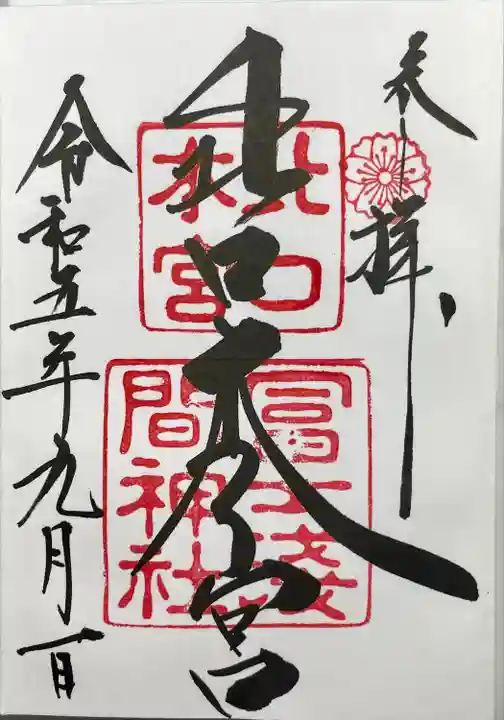 奉拝
北口本宮
北口本宮
冨士浅間神社
令和五年九月一日